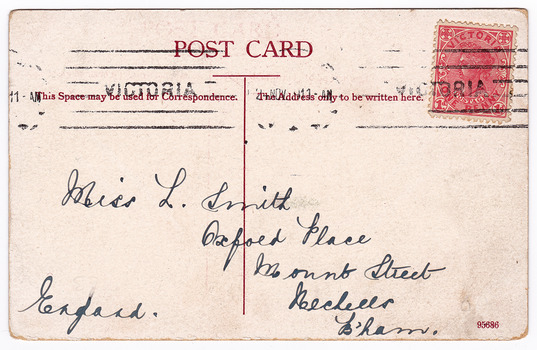 POST CARD
VICTORIA
ONE PENNY
11-AM VICTORIA NOV 11-AM VICTORIA
This Space may be used for Correspondence. The Address only to be written here.
Miss L. Smith
Oxford Place
Mount Street
Nechells
B'ham.
England.
95686